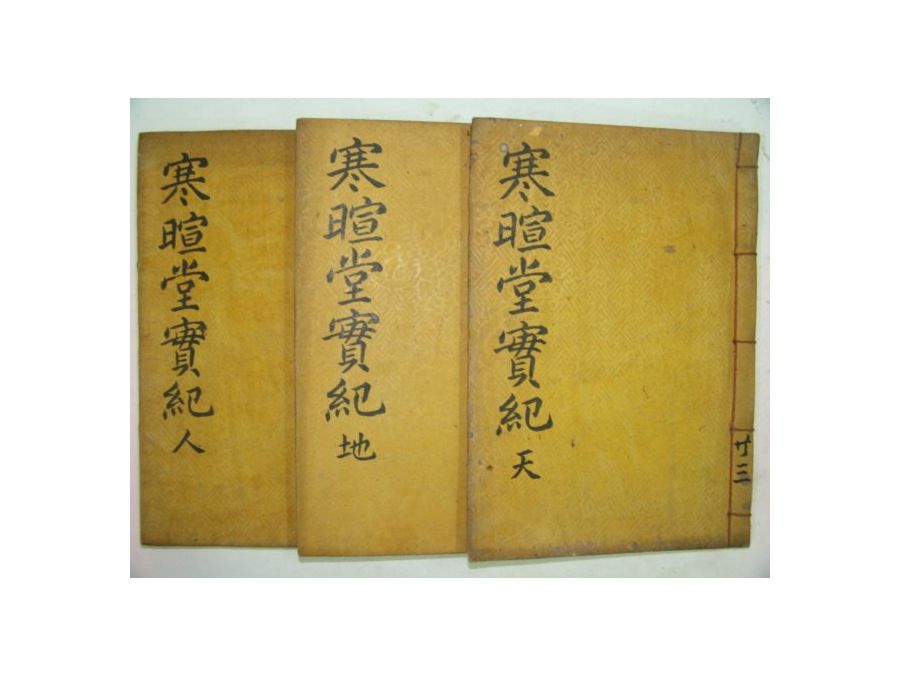 寒暄堂實紀 天
廾三
寒暄堂實紀 地
寒暄堂實紀 人